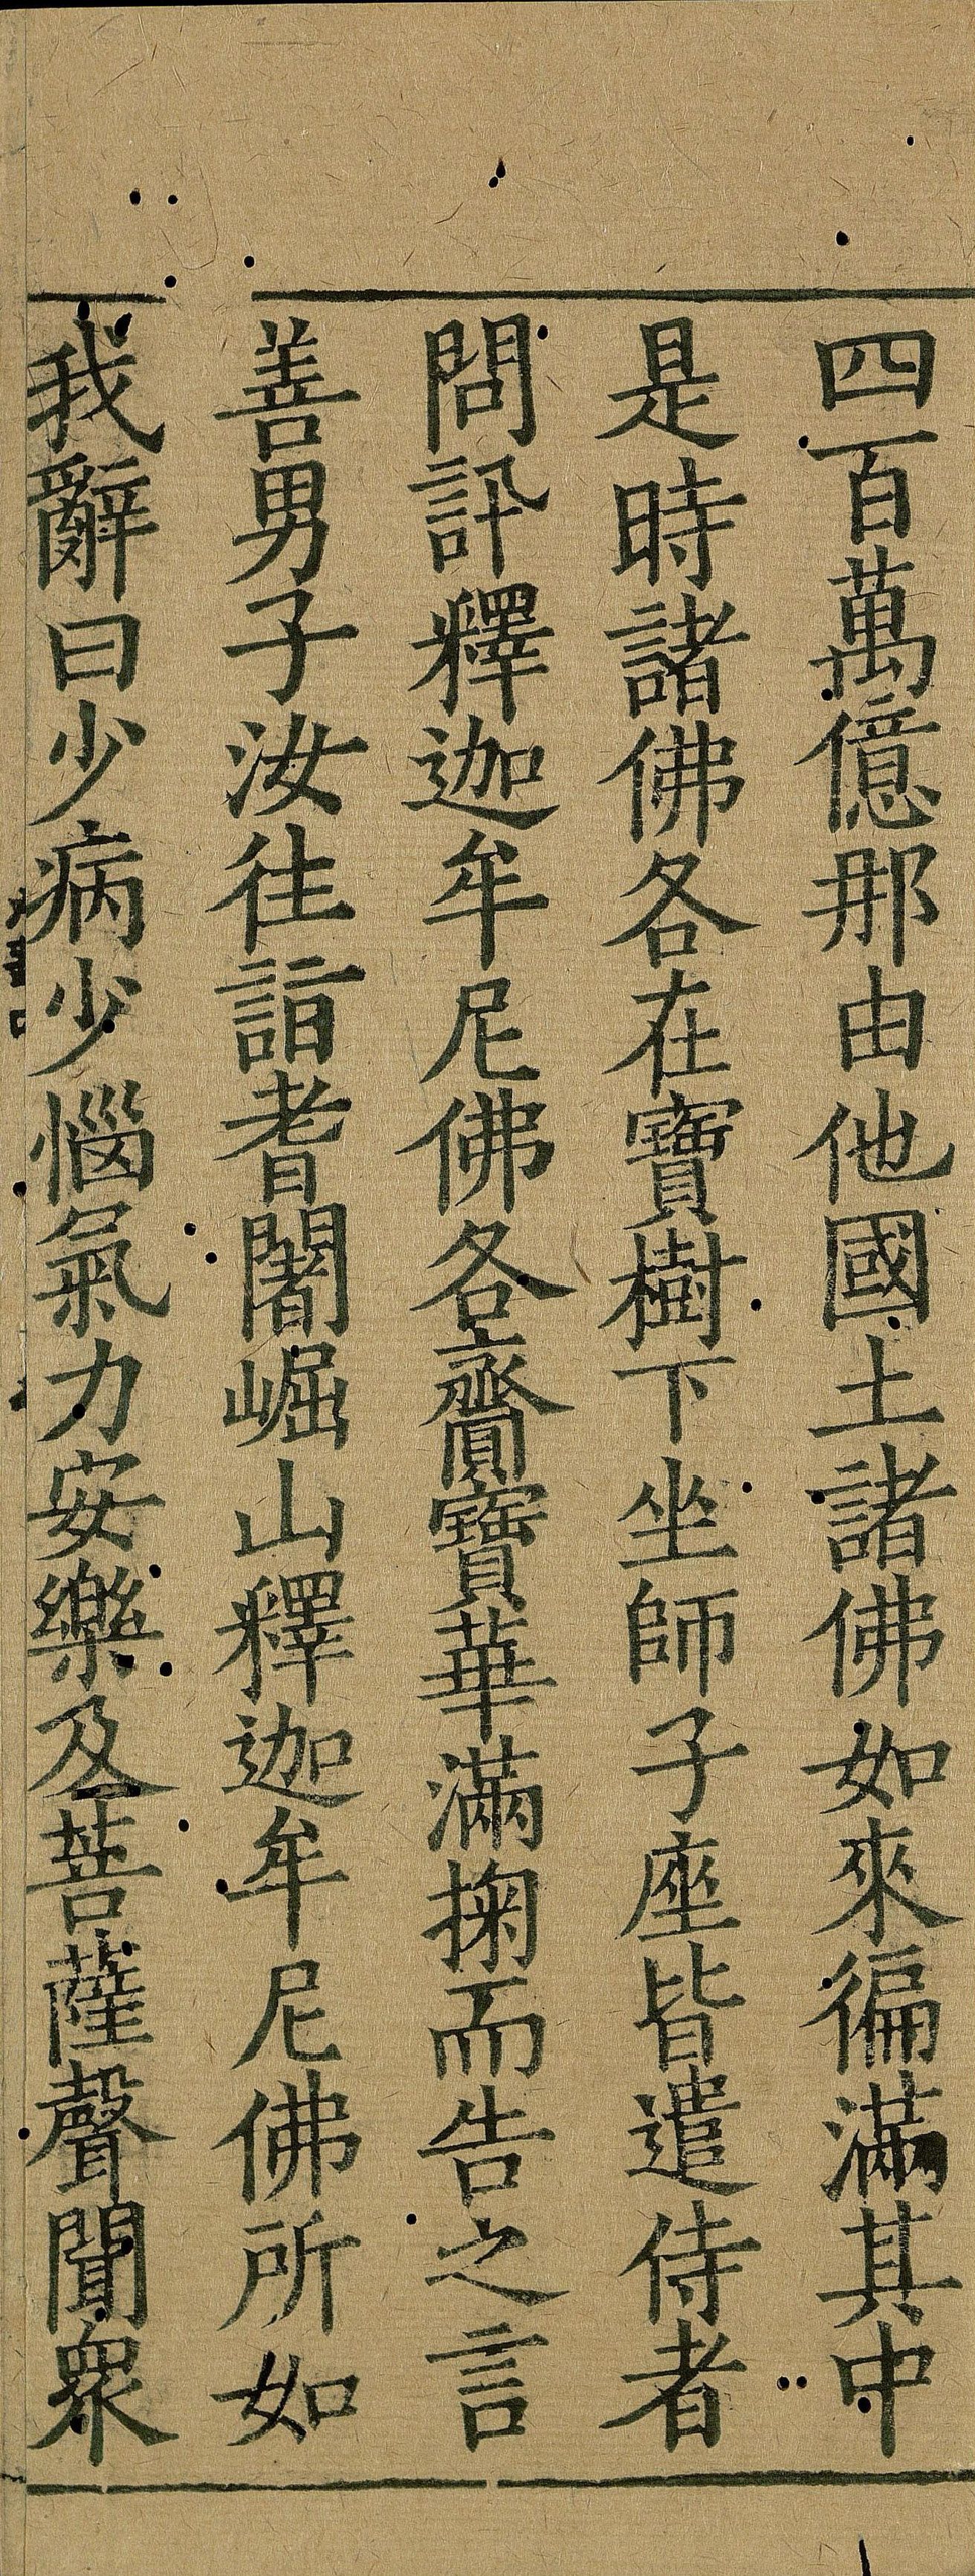 四百萬億那由他國土諸佛如來徧滿其中
是時諸佛各在寶樹下坐師子座皆遣侍者
問訊釋迦牟尼佛各齎寶華滿掬而告之言
善男子汝往詣耆闍崛山釋迦牟尼佛所如
我辭曰少病少惱氣力安樂及菩薩聲聞衆